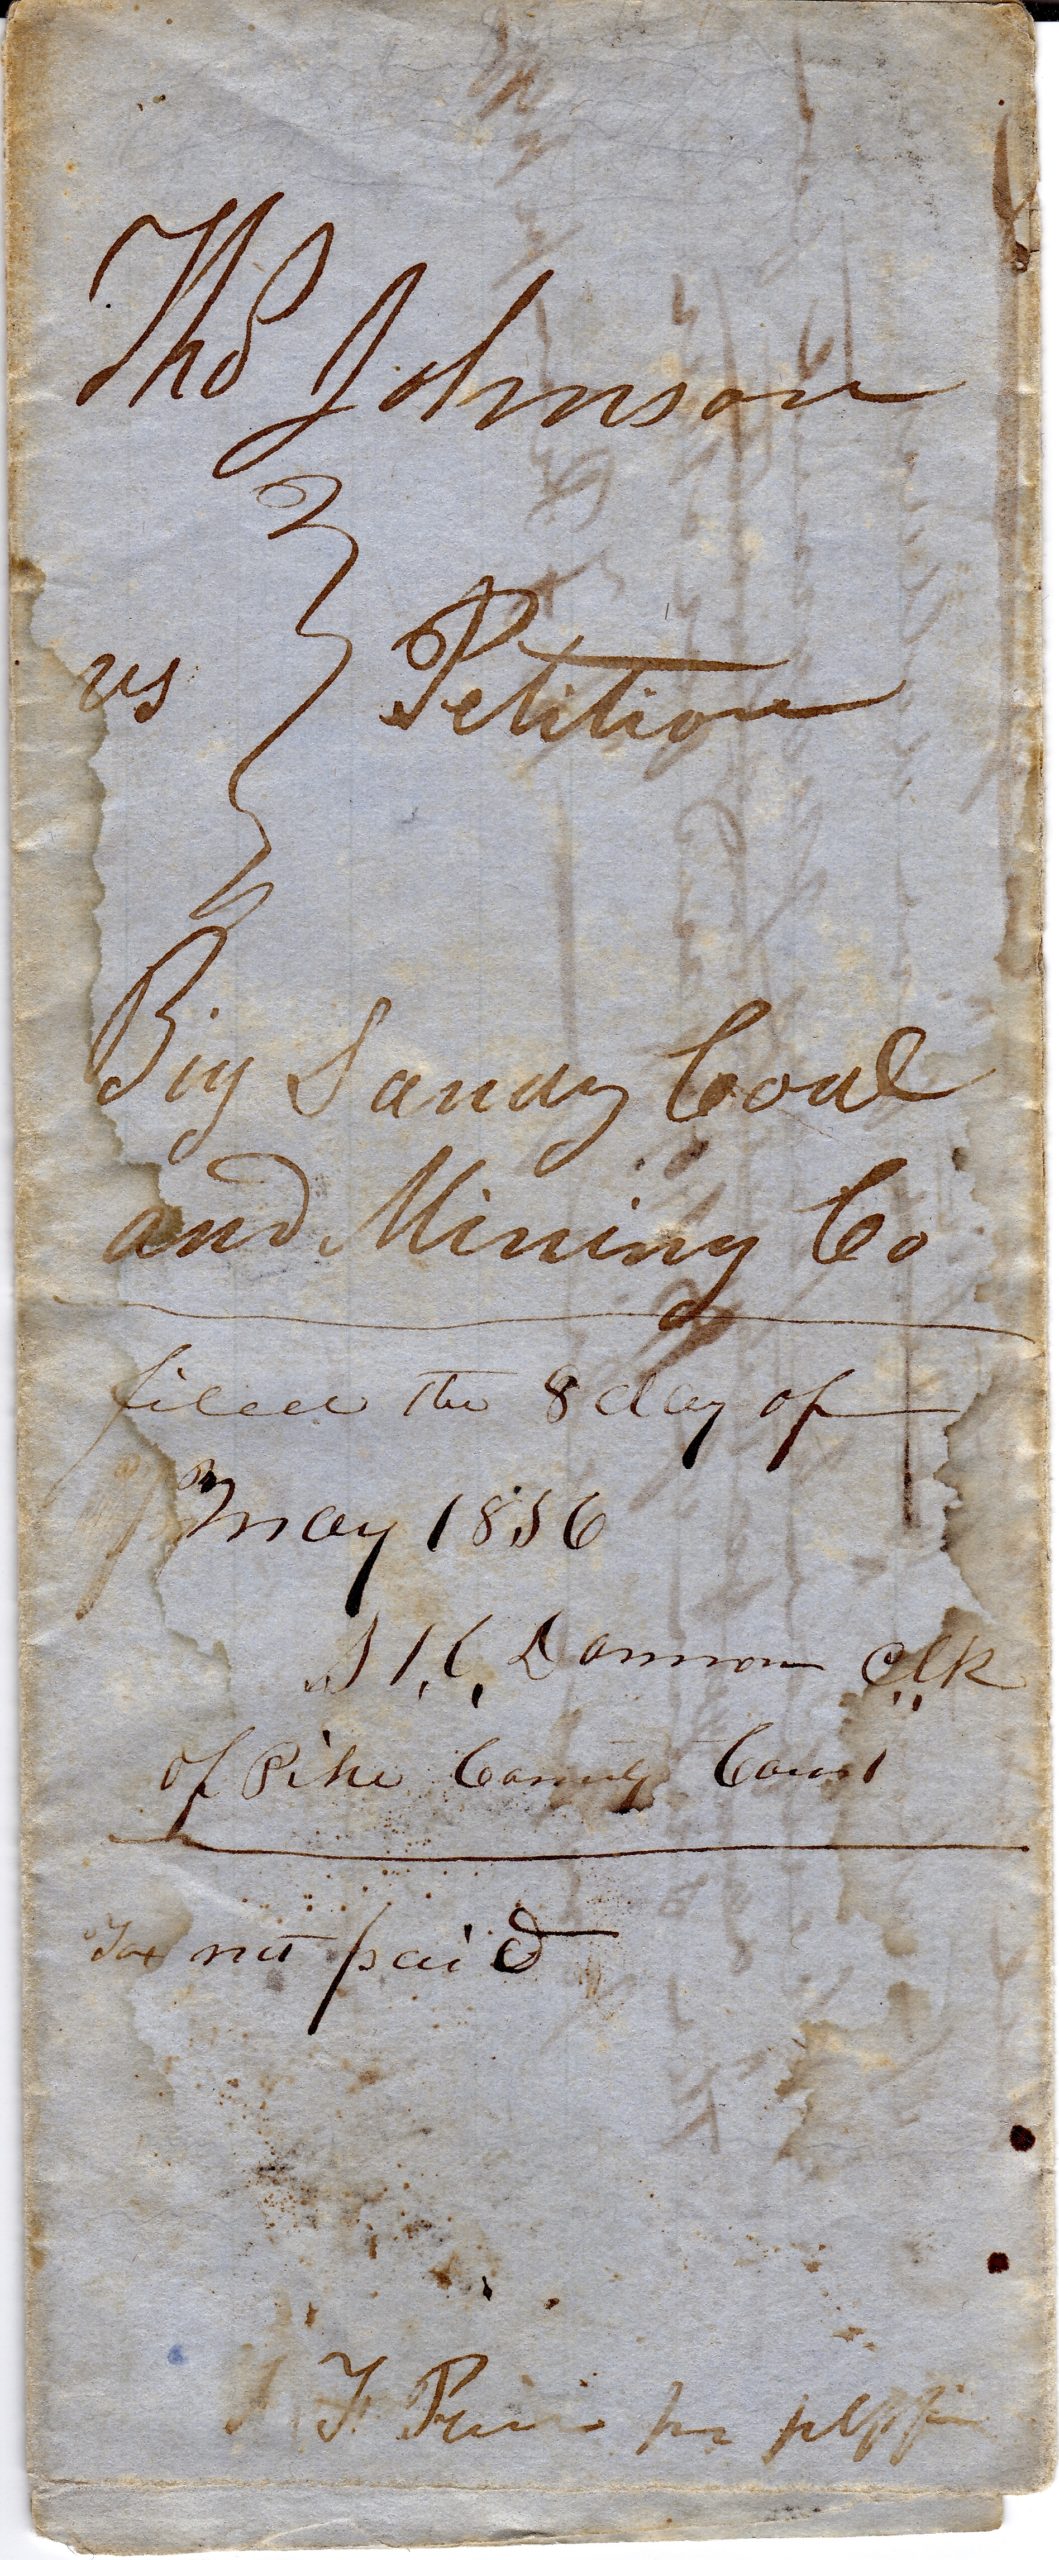 Thos Johnson
vs } Petition
Big Sandy Coal
and Mining Co
filed the 8 day of
May 1856
Clk
of Pike County Court
Tax not paid
F for plffn